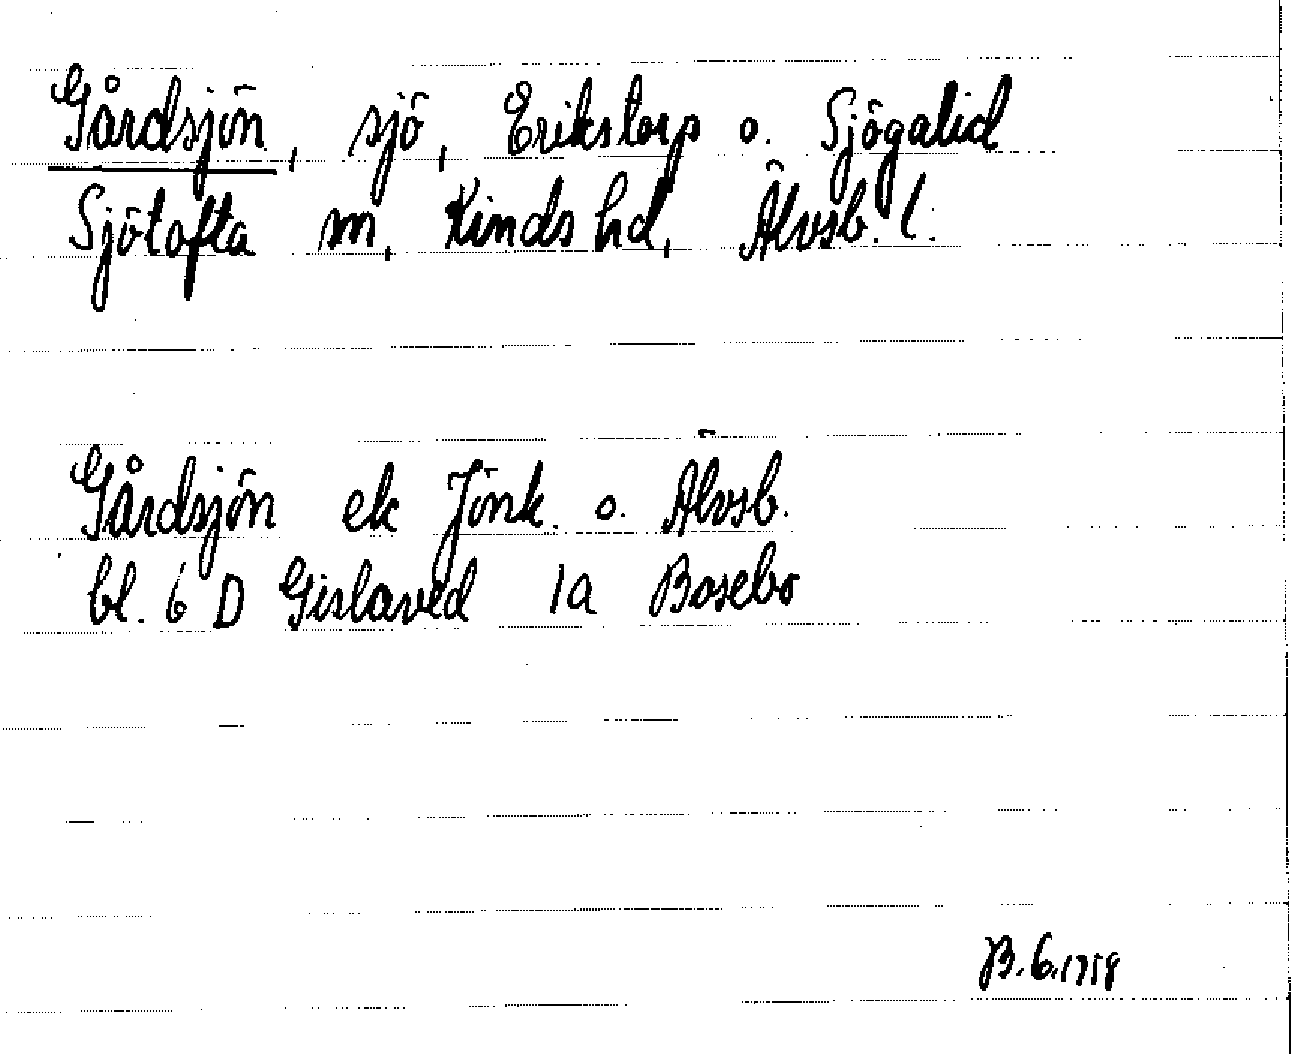 Gårdsjön, sjö, Erikstorp o. Sjögalid
Sjötofta sn, Kinds hd, Älvsb. l.
Gårdsjön ek Jönk. o. Älvsb.
bl. 6 D Gislaved 1a Bosebo